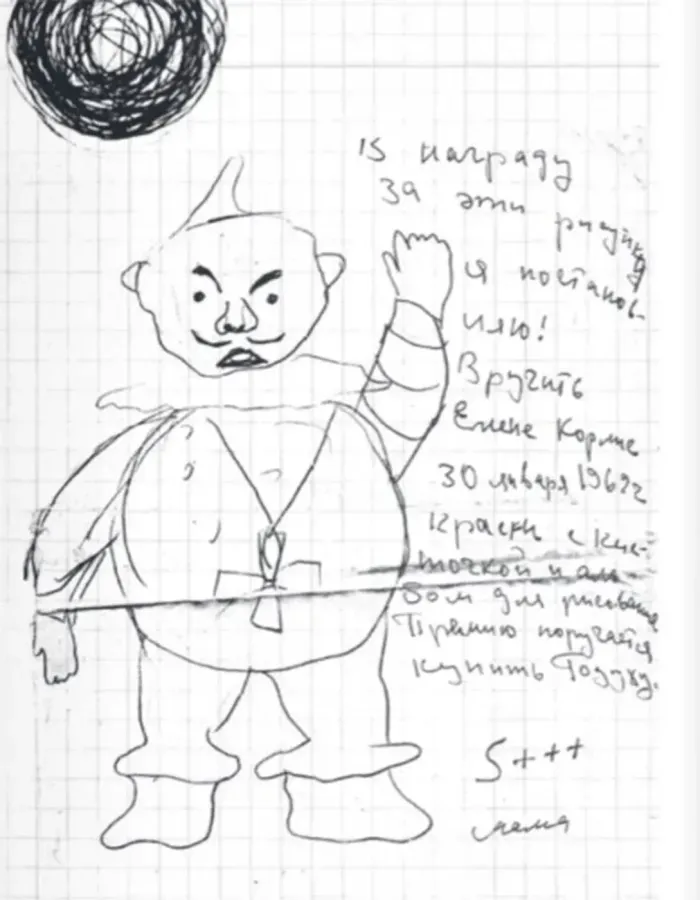 В награду
за эти рисунки
я постанов-
ляю!
Вручить
Елене Корине
30 января 1962 г
краски с кис-
точкой и аль
бом для рисования
Премию поручается
купить
5+++
мама